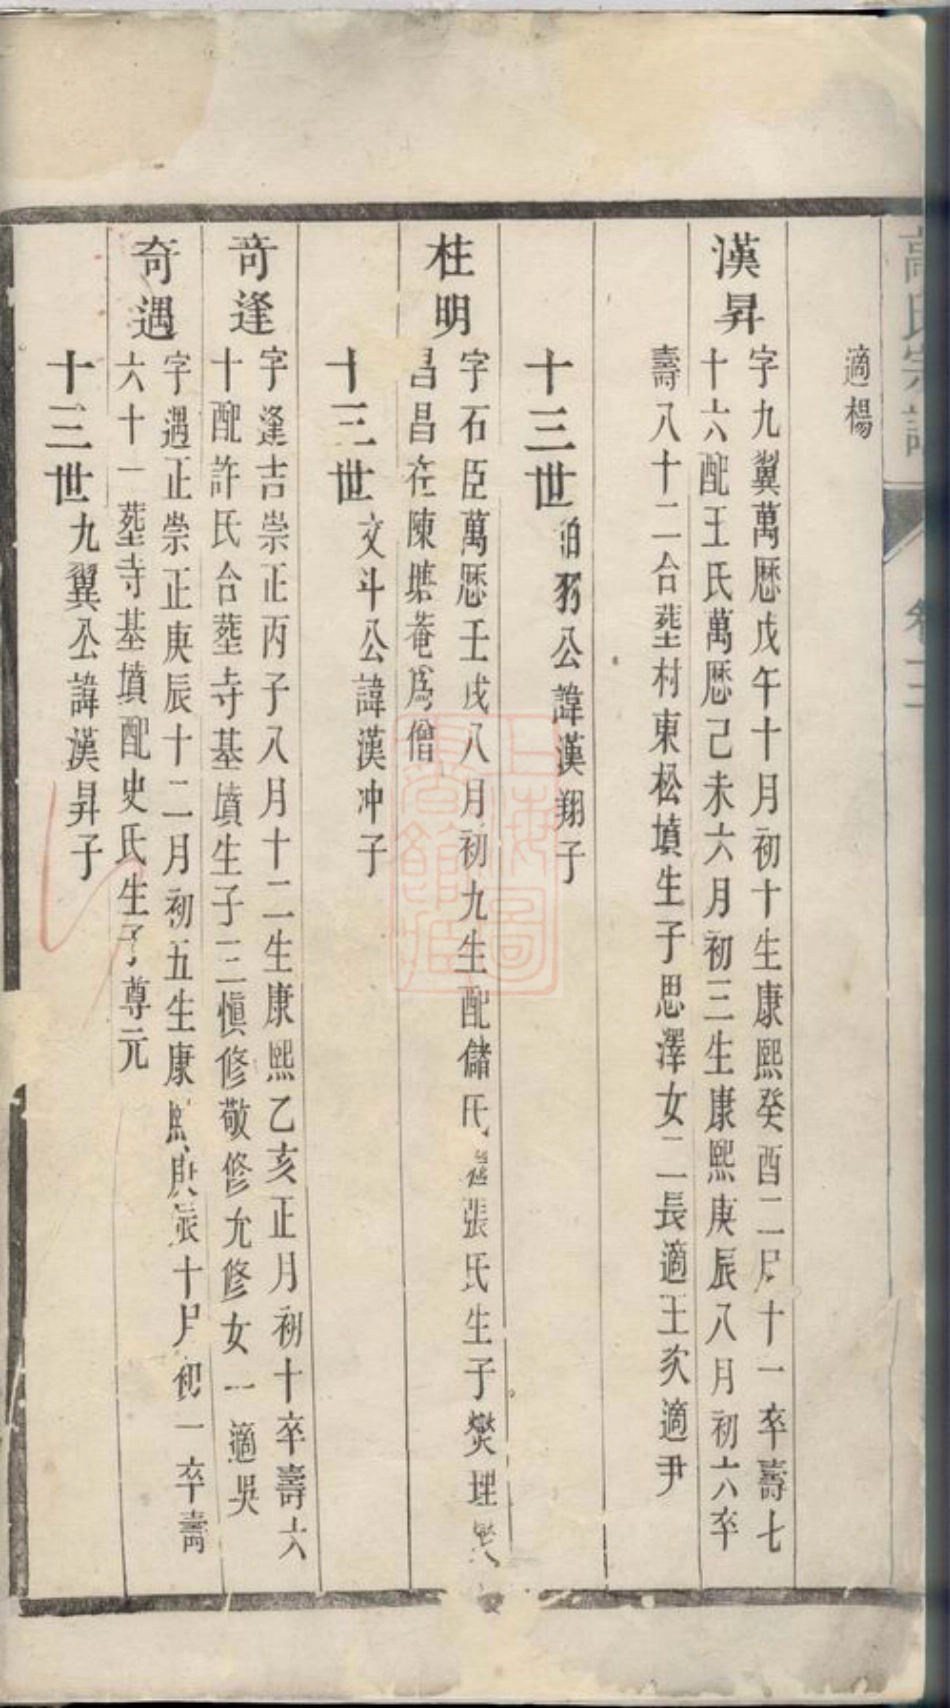 氏宗譜 卷十二
適楊
漢昇
字九翼萬厯戊午十月初十生康熙癸酉二月十一卒壽七
十六配王氏萬厯己未六月初三生康熙庚辰八月初六卒
壽八十二合塟村東松墳生子思澤女二長適王次適尹
十三世 公諱漢翔子
柱明
字石臣萬厯壬戌八月初九生配儲氏 張氏生子 理
昌昌在陳塘菴爲僧
十三世 文斗公諱漢冲子
奇逢
字逢吉崇正丙子八月十二生康熙乙亥正月初十卒壽六
十配許氏合塟寺基墳生子三慎修敬修允修女一適吳
奇遇
字遇正崇正庚辰十二月初五生康熙庚辰十月初一卒壽
六十一塟寺基墳配史氏生子尊元
十三世 九翼公諱漢昇子